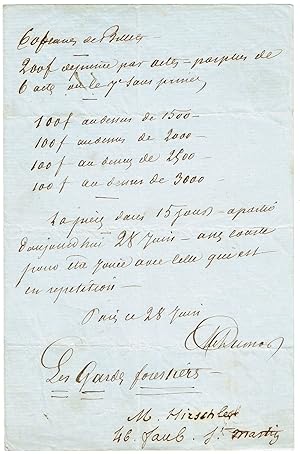 6 places de Billets
200f de prime par actes – pas plus de
6 actes ou le 7e sans prime,
100f au dessus de 1500 –
100f au dessus de 2000 –
100f au dessus de 2500 –
100f au dessus de 3000 –
La pièce dans 15 jours – à partir
d'aujourd'hui 28 juin –
pour être jouée avec celle qui est
en repetition –
Paris ce 28 juin
A Dumas
Les Gardes forestiers
M. Hirschler
46. Faub. St Martin